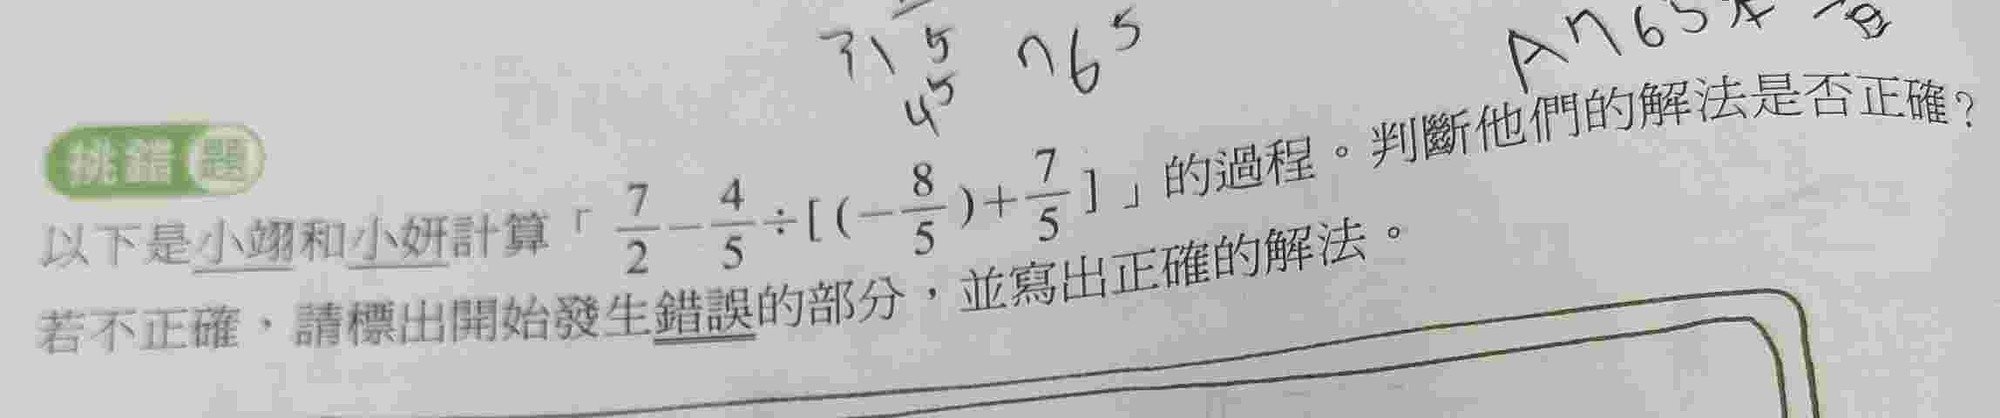 5
45
765
A765本
挑錯題
以下是小翊和小妍計算「7/2-4/5÷[(-8/5)+7/5]」的過程。判斷他們的解法是否正確?
若不正確,請標出開始發生錯誤的部分,並寫出正確的解法。